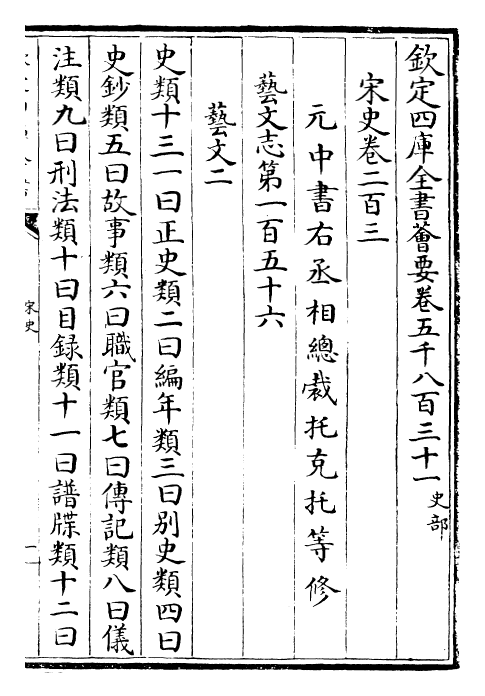 欽定四庫全書薈要卷五千八百三十一史部
宋史卷二百三
元中書右丞相總裁托克托等修
藝文志第一百五十六
藝文二
史類十三一曰正史類二曰編年類三曰别史類四曰
史鈔類五曰故事類六曰職官類七曰傳記類八曰儀
注類九曰刑法類十曰目録類十一曰譜牒類十二曰
宋史